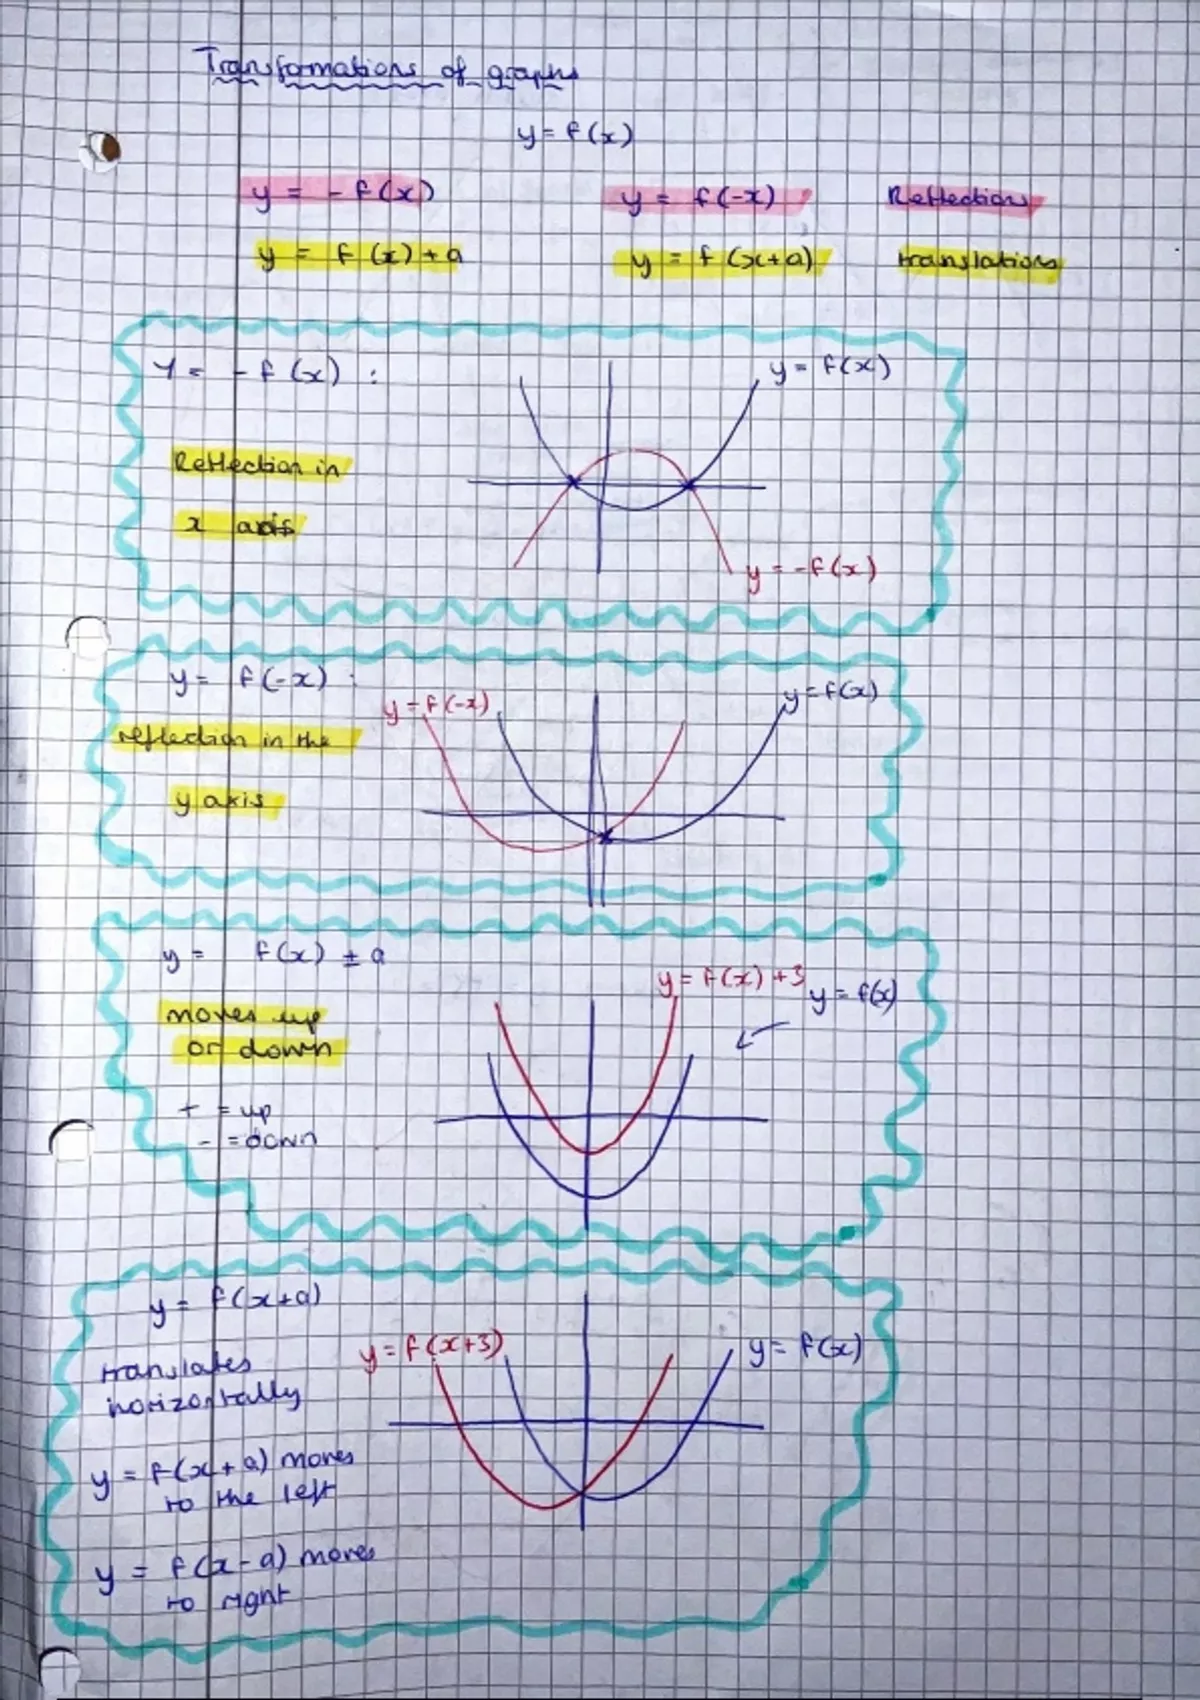 Transformations of graphs
y = f(x)
y = -f(x) y = f(-x) Reflections
y = f(x)+a y = f(x+a) translations
y = -f(x) :
y = f(x)
Reflection in
x axis
y = -f(x)
y = f(-x) :
y = f(-x)
y = f(x)
reflection in the
y axis
y = f(x) ± a
y = f(x)+3
y = f(x)
moves up
or down
+ = up
- = down
y = f(x+a)
y = f(x+3)
y = f(x)
translates
horizontally
y = f(x+a) moves
to the left
y = f(x-a) moves
to right